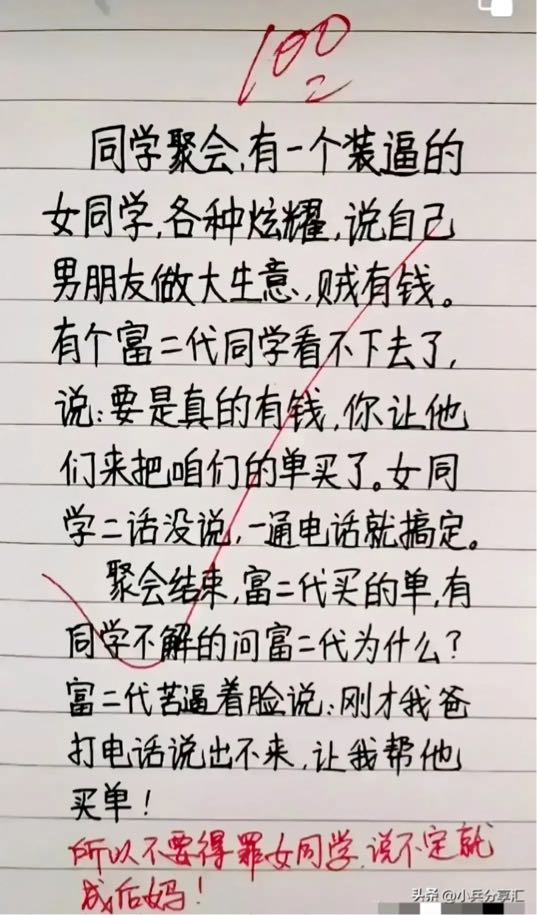 100
同学聚会,有一个装逼的
女同学,各种炫耀,说自己
男朋友做大生意,贼有钱。
有个富二代同学看不下去了,
说:要是真的有钱,你让他
们来把咱们的单买了。女同
学二话没说,一通电话就搞定。
聚会结束,富二代买的单,有
同学不解的问富二代为什么?
富二代苦逼着脸说:刚才我爸
打电话说出不来,让我帮他
买单!
所以不要得罪女同学,说不定就
成后妈!
头条 @小兵分享汇